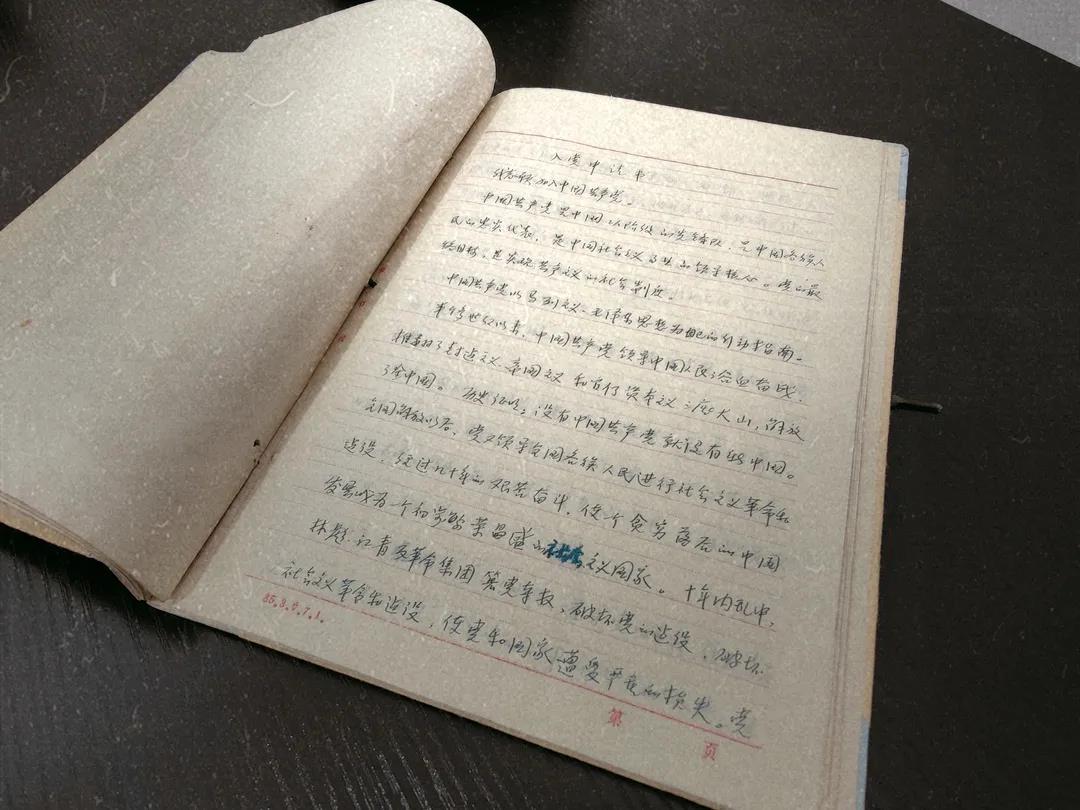 入党申请书
我志愿加入中国共产党。
中国共产党是中国工人阶级的先锋队，是中国各族人
民的忠实代表，是中国社会主义事业的领导核心。党的最
终目标，是实现共产主义的社会制度。
中国共产党以马列主义、毛泽东思想为自己的行动指南。
半个多世纪以来，中国共产党领导中国人民浴血奋战，
推翻了封建主义、帝国主义和官僚资本主义三座大山，解放
了全中国。历史证明：没有中国共产党就没有新中国。
全国解放以后，党又领导全国各族人民进行社会主义革命和
建设，经过几十年的艰苦奋斗，使一个贫穷落后的中国
发展成为一个初步繁荣昌盛的社会主义国家。十年内乱中，
林彪、江青反革命集团篡党夺权，破坏党的建设，破坏
社会主义革命和建设，使党和国家遭受严重的损失。党
85.8.9.7.1.
第 页